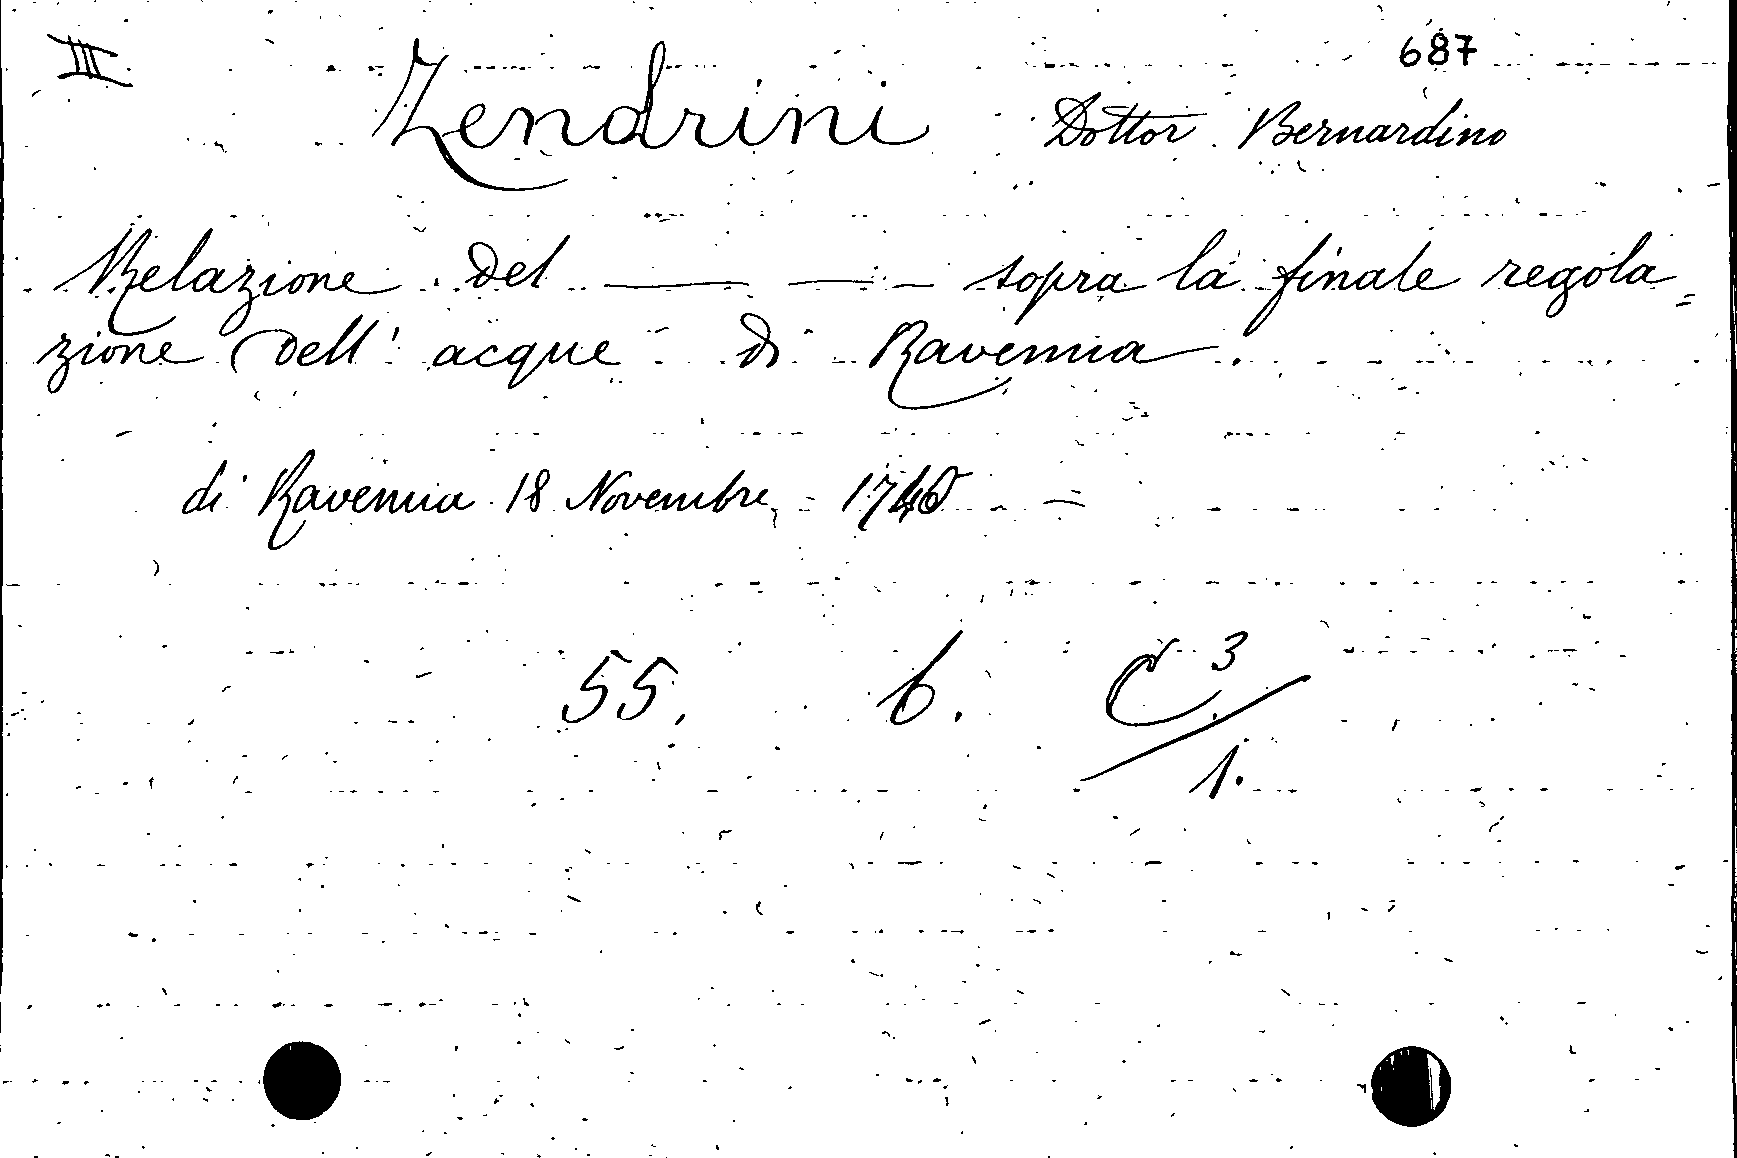 III 687
Zendrini Dottor Bernardino
Relazione del — — — sopra la finale regola=
zione dell' acque di Ravenna.
di Ravenna 18 Novembre
55. b. C 3 / 1.